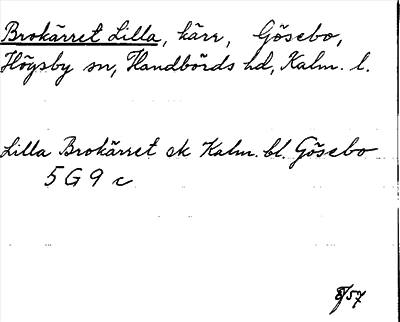 Brokärret Lilla, kärr, Gösebo,
Högsby sn, Handbörds hd, Kalm. l.
Lilla Brokärret ek Kalm. bl. Gösebo
5 G 9 c
57